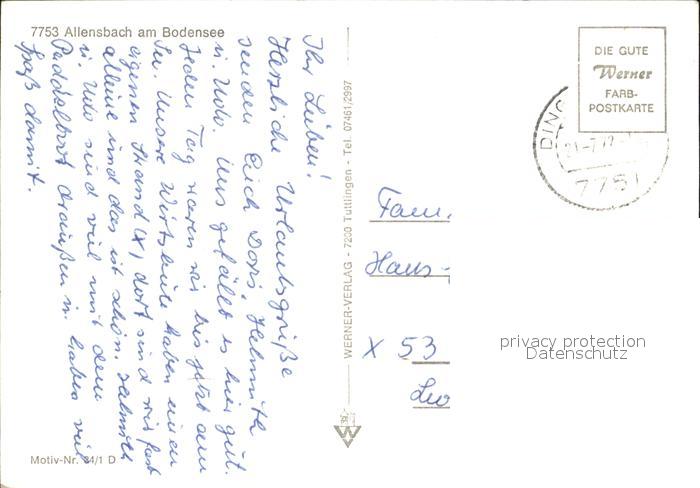 7753 Allensbach am Bodensee
Ihr Lieben!
Herzliche Urlaubsgrüße
senden Euch Doris, Helmuth
u. Udo. Uns gefällt es hier gut.
Jeden Tag waren wir bis jetzt am
See. Unsere Wirtsleute haben einen
eigenen Strand (X), dort sind wir fast
alleine und das ist schön. Helmuth
u. Udo sind viel mit dem
Paddelboot draußen u. haben viel
Spaß damit.
Motiv-Nr. 84/1 D
WERNER-VERLAG - 7200 Tuttlingen - Tel. 07461/2997
W
DIE GUTE
Werner
FARB-
POSTKARTE
DING
7751
Fam.
Haus-
X 53
privacy protection
Datenschutz